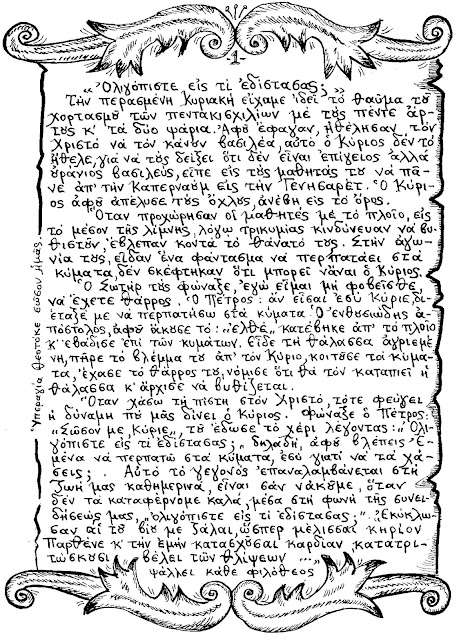 -1-
«Ὀλιγόπιστε εἰς τί ἐδίστασας;»
Τὴν περασμένη Κυριακὴ εἴχαμε ἰδεῖ τὸ θαῦμα τοῦ
χορτασμοῦ τῶν πεντακισχιλίων μὲ τοὺς πέντε ἄρ-
τους κ' τὰ δύο ψάρια. Ἀφοῦ ἔφαγαν, ἠθέλησαν τὸν
Χριστὸ νὰ τὸν κάνουν βασιλέα, αὐτὸ ὁ Κύριος δὲν τὸ
ἤθελε, γιὰ νὰ τοὺς δείξει ὅτι δὲν εἶναι ἐπίγειος ἀλλὰ
οὐράνιος βασιλεύς, εἶπε εἰς τοὺς μαθητάς του νὰ πᾶ-
νε ἀπ' τὴν Καπερναοὺμ εἰς τὴν Γεννησαρέτ. Ὁ Κύρι-
ος ἀφοῦ ἀπέλυσε τοὺς ὄχλους, ἀνέβη εἰς τὸ ὄρος.
Ὅταν προχώρησαν οἱ μαθητὲς μὲ τὸ πλοῖο, εἰς
τὸ μέσον τῆς λίμνης, λόγω τρικυμίας κινδύνευαν νὰ βυ-
θιστοῦν, ἔβλεπαν κοντὰ τὸ θάνατό τους. Στὴν ἀγω-
νία τους, εἶδαν ἕνα φάντασμα νὰ περπατάει στὰ
κύματα, δὲν σκέφτηκαν ὅτι μπορεῖ νἆναι ὁ Κύριος.
Ὁ Σωτὴρ τοὺς φώναξε, ἐγὼ εἶμαι μὴ φοβεῖσθε,
νὰ ἔχετε θάρρος. Ὁ Πέτρος: ἂν εἶσαι ἐσὺ Κύριε, δι-
έταξέ με νὰ περπατήσω στὰ κύματα. Ὁ ἐνθουσιώδης ἀ-
πόστολος, ἀφοῦ ἄκουσε τό: „ἐλθέ„ κατέβηκε ἀπ' τὸ πλοῖο
κ' ἐβάδισε ἐπὶ τῶν κυμάτων. Εἶδε τὴ θάλασσα ἀγριεμέ-
νη, πῆρε τὸ βλέμμα του ἀπ' τὸν Κύριο, κοίτουσε τὰ κύμα-
τα, ἔχασε τὸ θάρρος του, νόμισε ὅτι θὰ τὸν καταπιεῖ ἡ
θάλασσα κ' ἄρχισε νὰ βυθίζεται.
Ὅταν χάσω τὴ πίστη στὸν Χριστό, τότε φεύγει
ἡ δύναμη ποὺ μᾶς δίνει ὁ Κύριος. Φώναξε ὁ Πέτρος:
„Σῶσον με, Κύριε„, τοῦ ἔδωσε τὸ χέρι λέγοντας: „Ὀλι-
γόπιστε εἰς τί ἐδίστασας;„ δηλαδή, ἀφοῦ βλέπεις Ἐ-
μένα νὰ περπατῶ στὰ κύματα, ἐσὺ γιατί νὰ τὰ χά-
σεις; . Αὐτὸ τὸ γεγονὸς ἐπαναλαμβάνεται στὴ
ζωή μας καθημερινά, εἶναι σὰν νἀκοῦμε, ὅταν
δὲν τὰ καταφέρνομε καλά, μέσα στὴ φωνὴ τῆς συνει-
δήσεώς μας, „ὀλιγόπιστε εἰς τί ἐδίστασας;". „Ἐκύκλω-
σαν αἱ τοῦ βίου με ζάλαι, ὥσπερ μέλισσαι κηρίον
Παρθένε κ' τὴν ἐμὴν κατασχοῦσαι καρδίαν, κατατρι-
τώσκουσι βέλει τῶν θλίψεων ...„
ψάλλει κάθε φιλόθεος
Ὑπεραγία Θεοτόκε σῶσον ἡμᾶς.